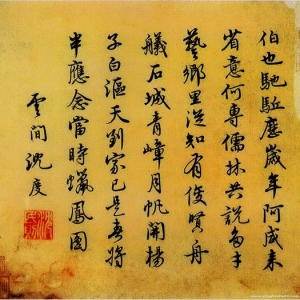 伯也馳駈歷歲年阿咸来
省意何專儒林共說多才
藝鄉里從知有俊賢舟
艤石城青嶂月帆開楊
子白漚天到家已是春将
半應念當時蠟鳳圓
雲間沈度